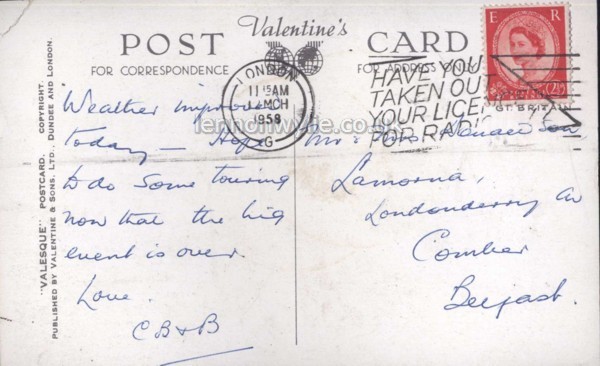 POST Valentine's CARD
FOR CORRESPONDENCE FOR ADDRESS ONLY
E R
2½D
LONDON
11 15AM
MCH
1958
G
HAVE YOU
TAKEN OUT
YOUR LICEN
FOR RADI
"VALESQUE" POSTCARD. COPYRIGHT.
PUBLISHED BY VALENTINE & SONS, LTD., DUNDEE AND LONDON.
Weather improve
today — Hope
to do some touring
now that the big
event is over.
Love.
CB&B
Mr & Mrs
Lamorna,
Londonderry Av
Comber
Belfast.
lennonwylie.co